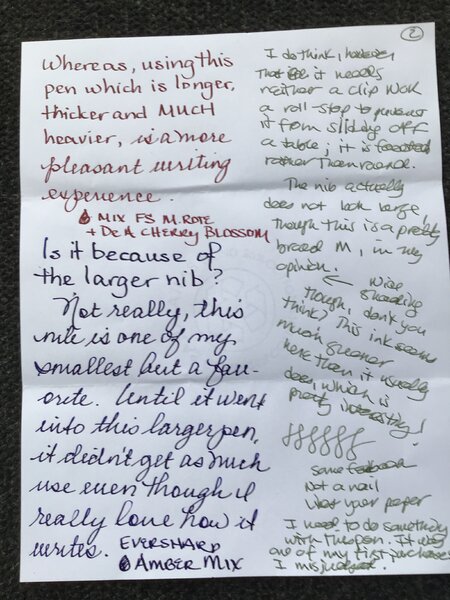 2
Whereas, using this
pen which is longer,
thicker and MUCH
heavier, is a more
pleasant writing
experience.
MIX FS M. ROTE
+ DeA CHERRY BLOSSOM
Is it because of
the larger nib?
Not really, this
nib is one of my
smallest but a fav-
orite. Until it went
into this larger pen,
it didn't get as much
use even though I
really love how it
writes. EVERSHARP
AMBER MIX
I do think, however,
that it needs
neither a clip nor
a roll-stop to prevent
it from sliding off
a table; it is faceted
rather than round.
The nib actually
does not look large,
though this is a pretty
broad M, in my
opinion. ← Nice shading
though, don't you
think? This ink seems
much greener
here than it usually
does, which is
pretty interesting!
some feedback
Not a nail
I need to do something
with the pen. It was
one of my first purchases
I misjudged.